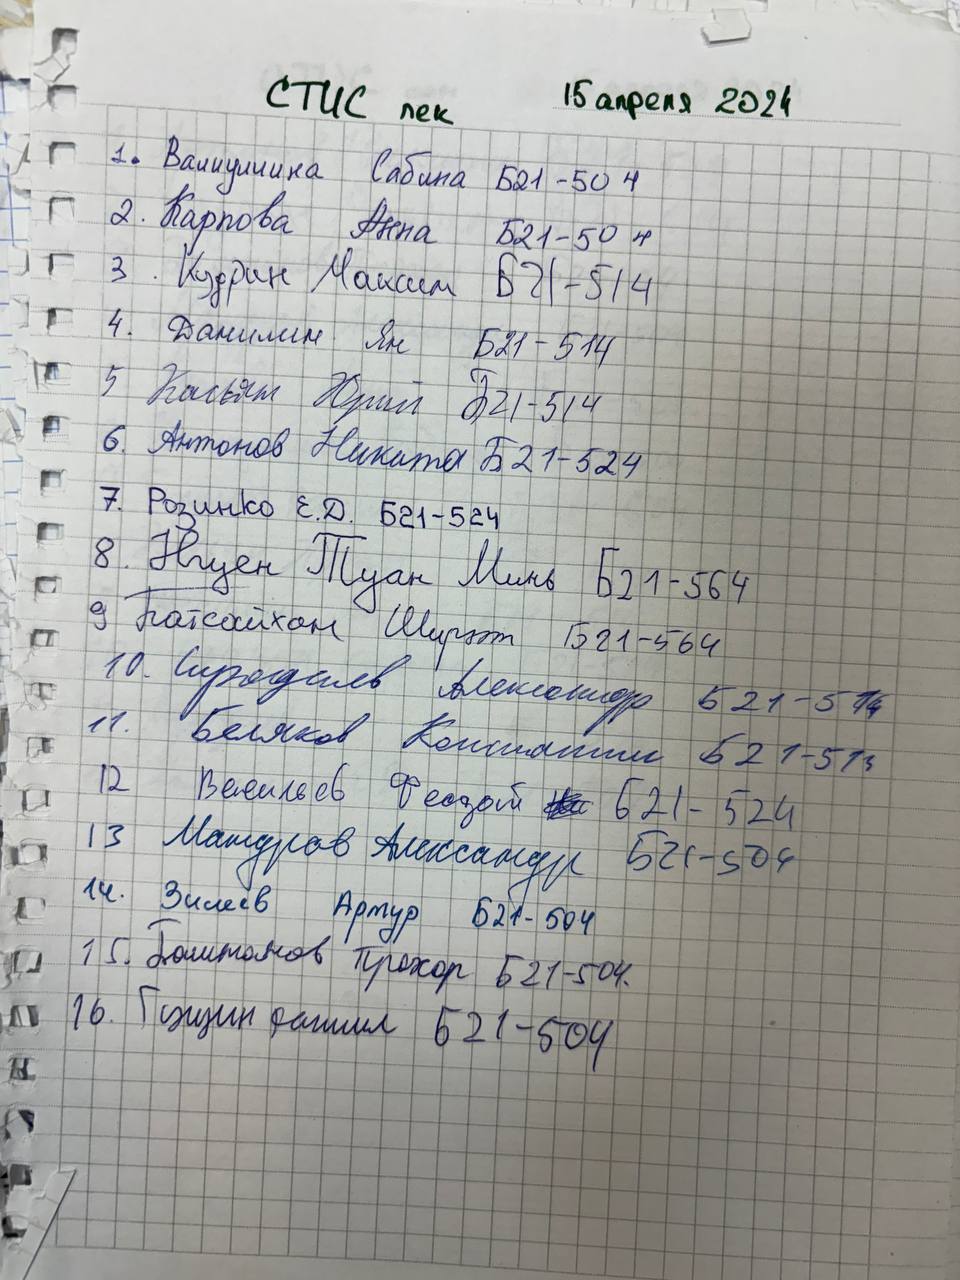 СТИС лек 15 апреля 2024
1. Валиуллина Сабина Б21-504
2. Карпова Анна Б21-504
3. Кудрин Максим Б21-514
4. Данилин Ян Б21-514
5 Касьян Юрий Б21-514
6. Антонов Никита Б21-524
7. Розинко Е.Д. Б21-524
8. Нгуен Туан Минь Б21-564
9 Батсайхан Ширэт Б21-564
10. Александр
11. Беляков Константин
12 Васильев Феодой Б21-524
13 Александр Б21-504
14. Зилеев Артур Б21-504
15. Баштанов Прохор Б21-504.
16. Б21-504